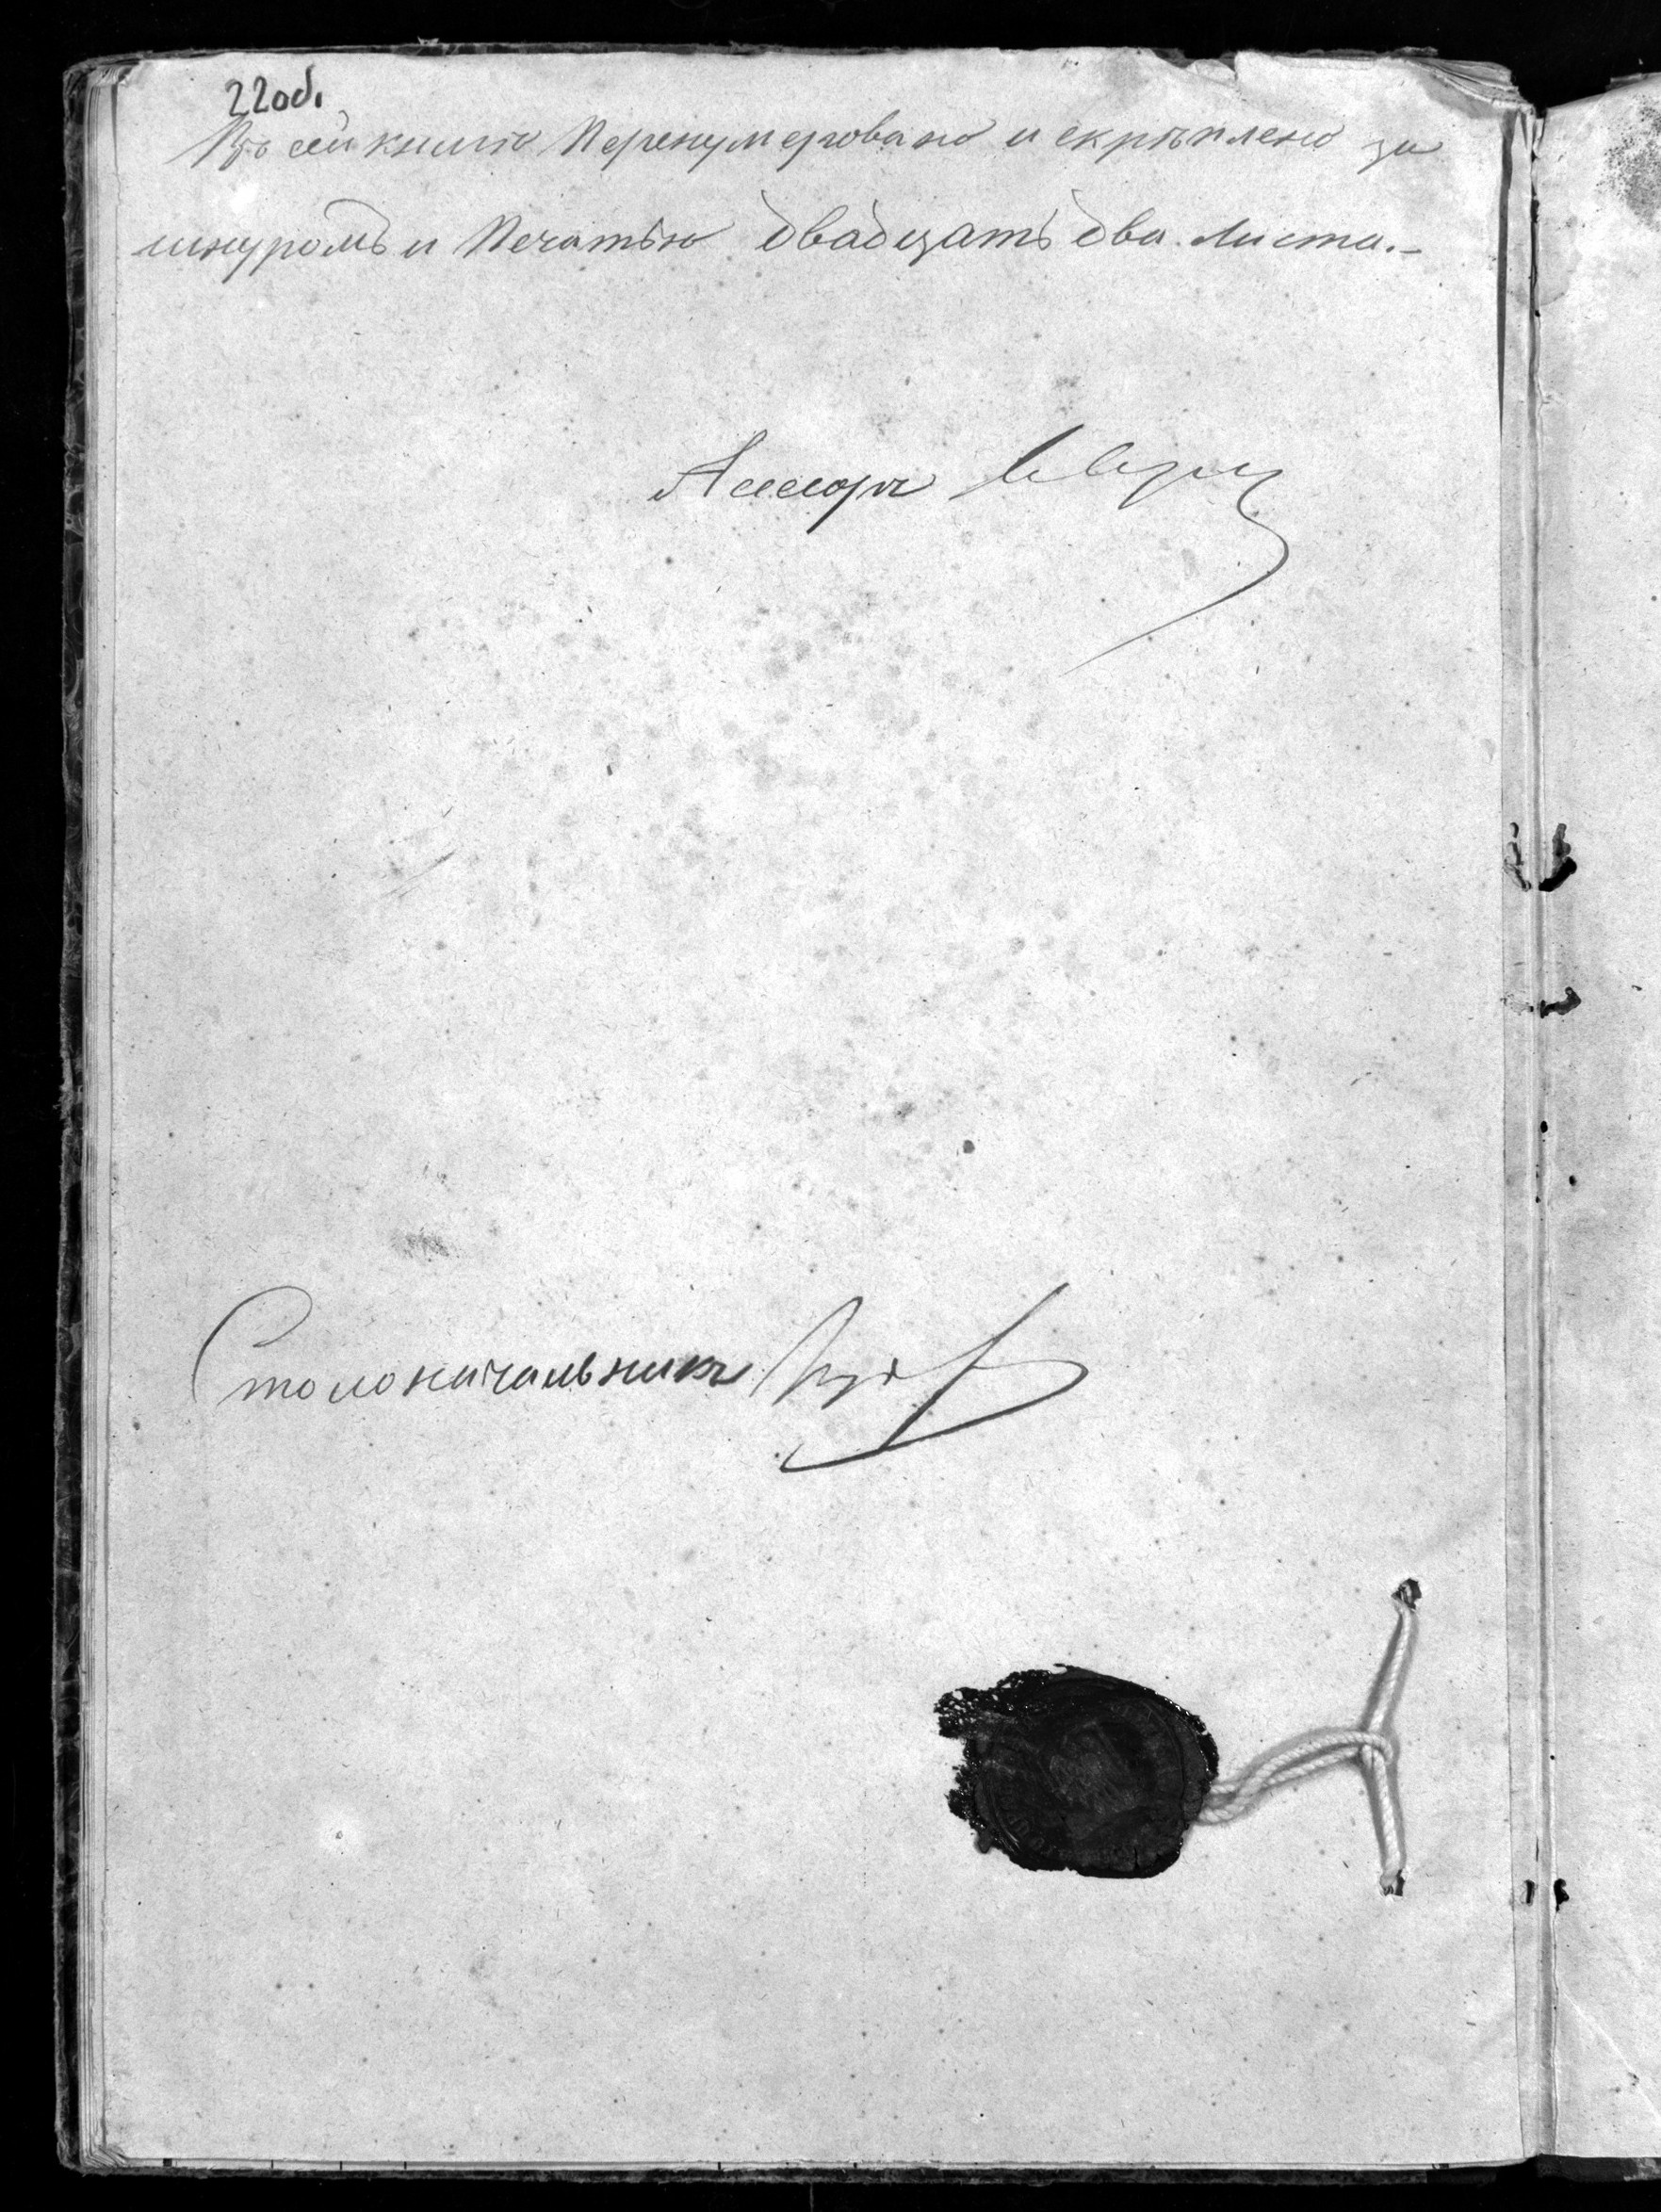 22 об.
Въ сей книге перенумеровано и скреплено за
шнуромъ и Печатью двадцать два листа.-
Асессоръ
Столоначальникъ